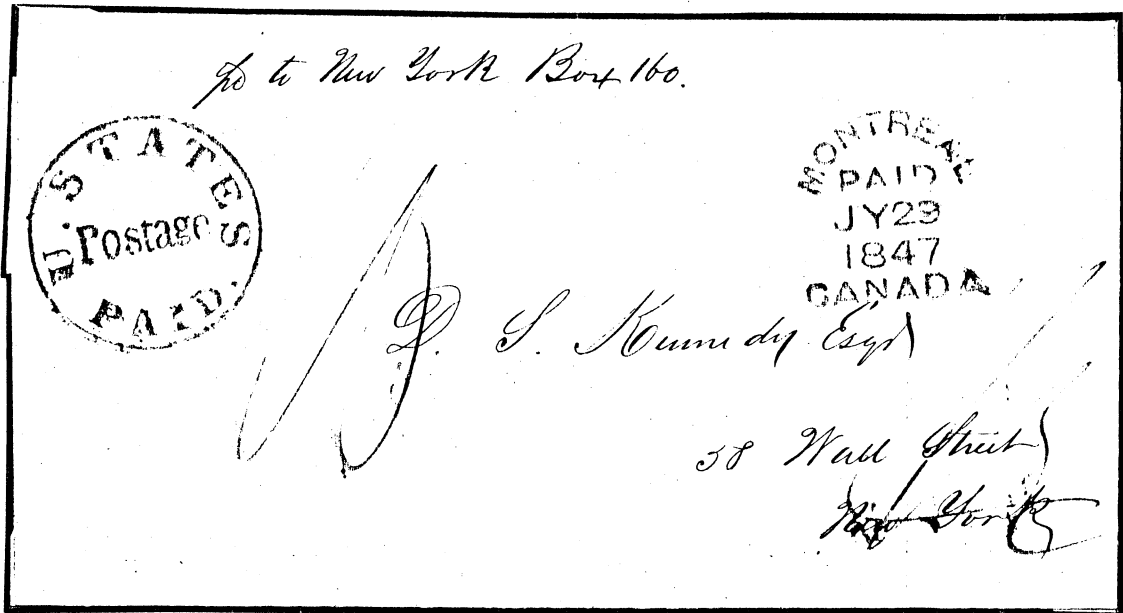 pd to New York Box 160.
U. STATES
Postage
PAID.
MONTREAL
PAID
JY 29
1847
CANADA
D. S. Kennedy Esqr
58 Wall Street
New York